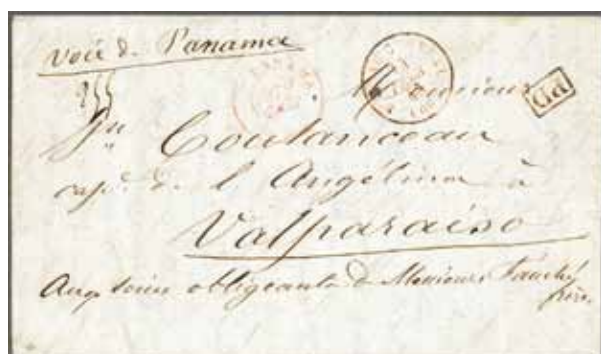 voie de Panama
255
Monsieur
Jn Coutanceau
cape. de l'Angélina à
Valparaiso
Aux soins obligeants de Messieurs frères
PD